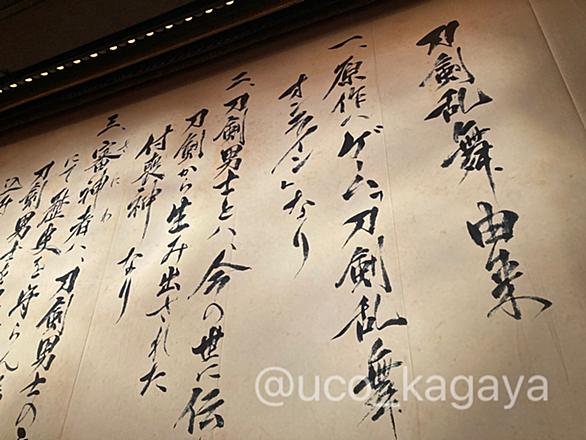 刀剣乱舞 由来
一、原作ハゲーム「刀剣乱舞
オンライン」なり
二、刀剣男士とハ、今の世に伝
刀剣から生み出された
付喪神 なり
三、審神者ハ、刀剣男士の
さにわ
にて歴史を守らん
刀剣男士を
@uco_kagaya